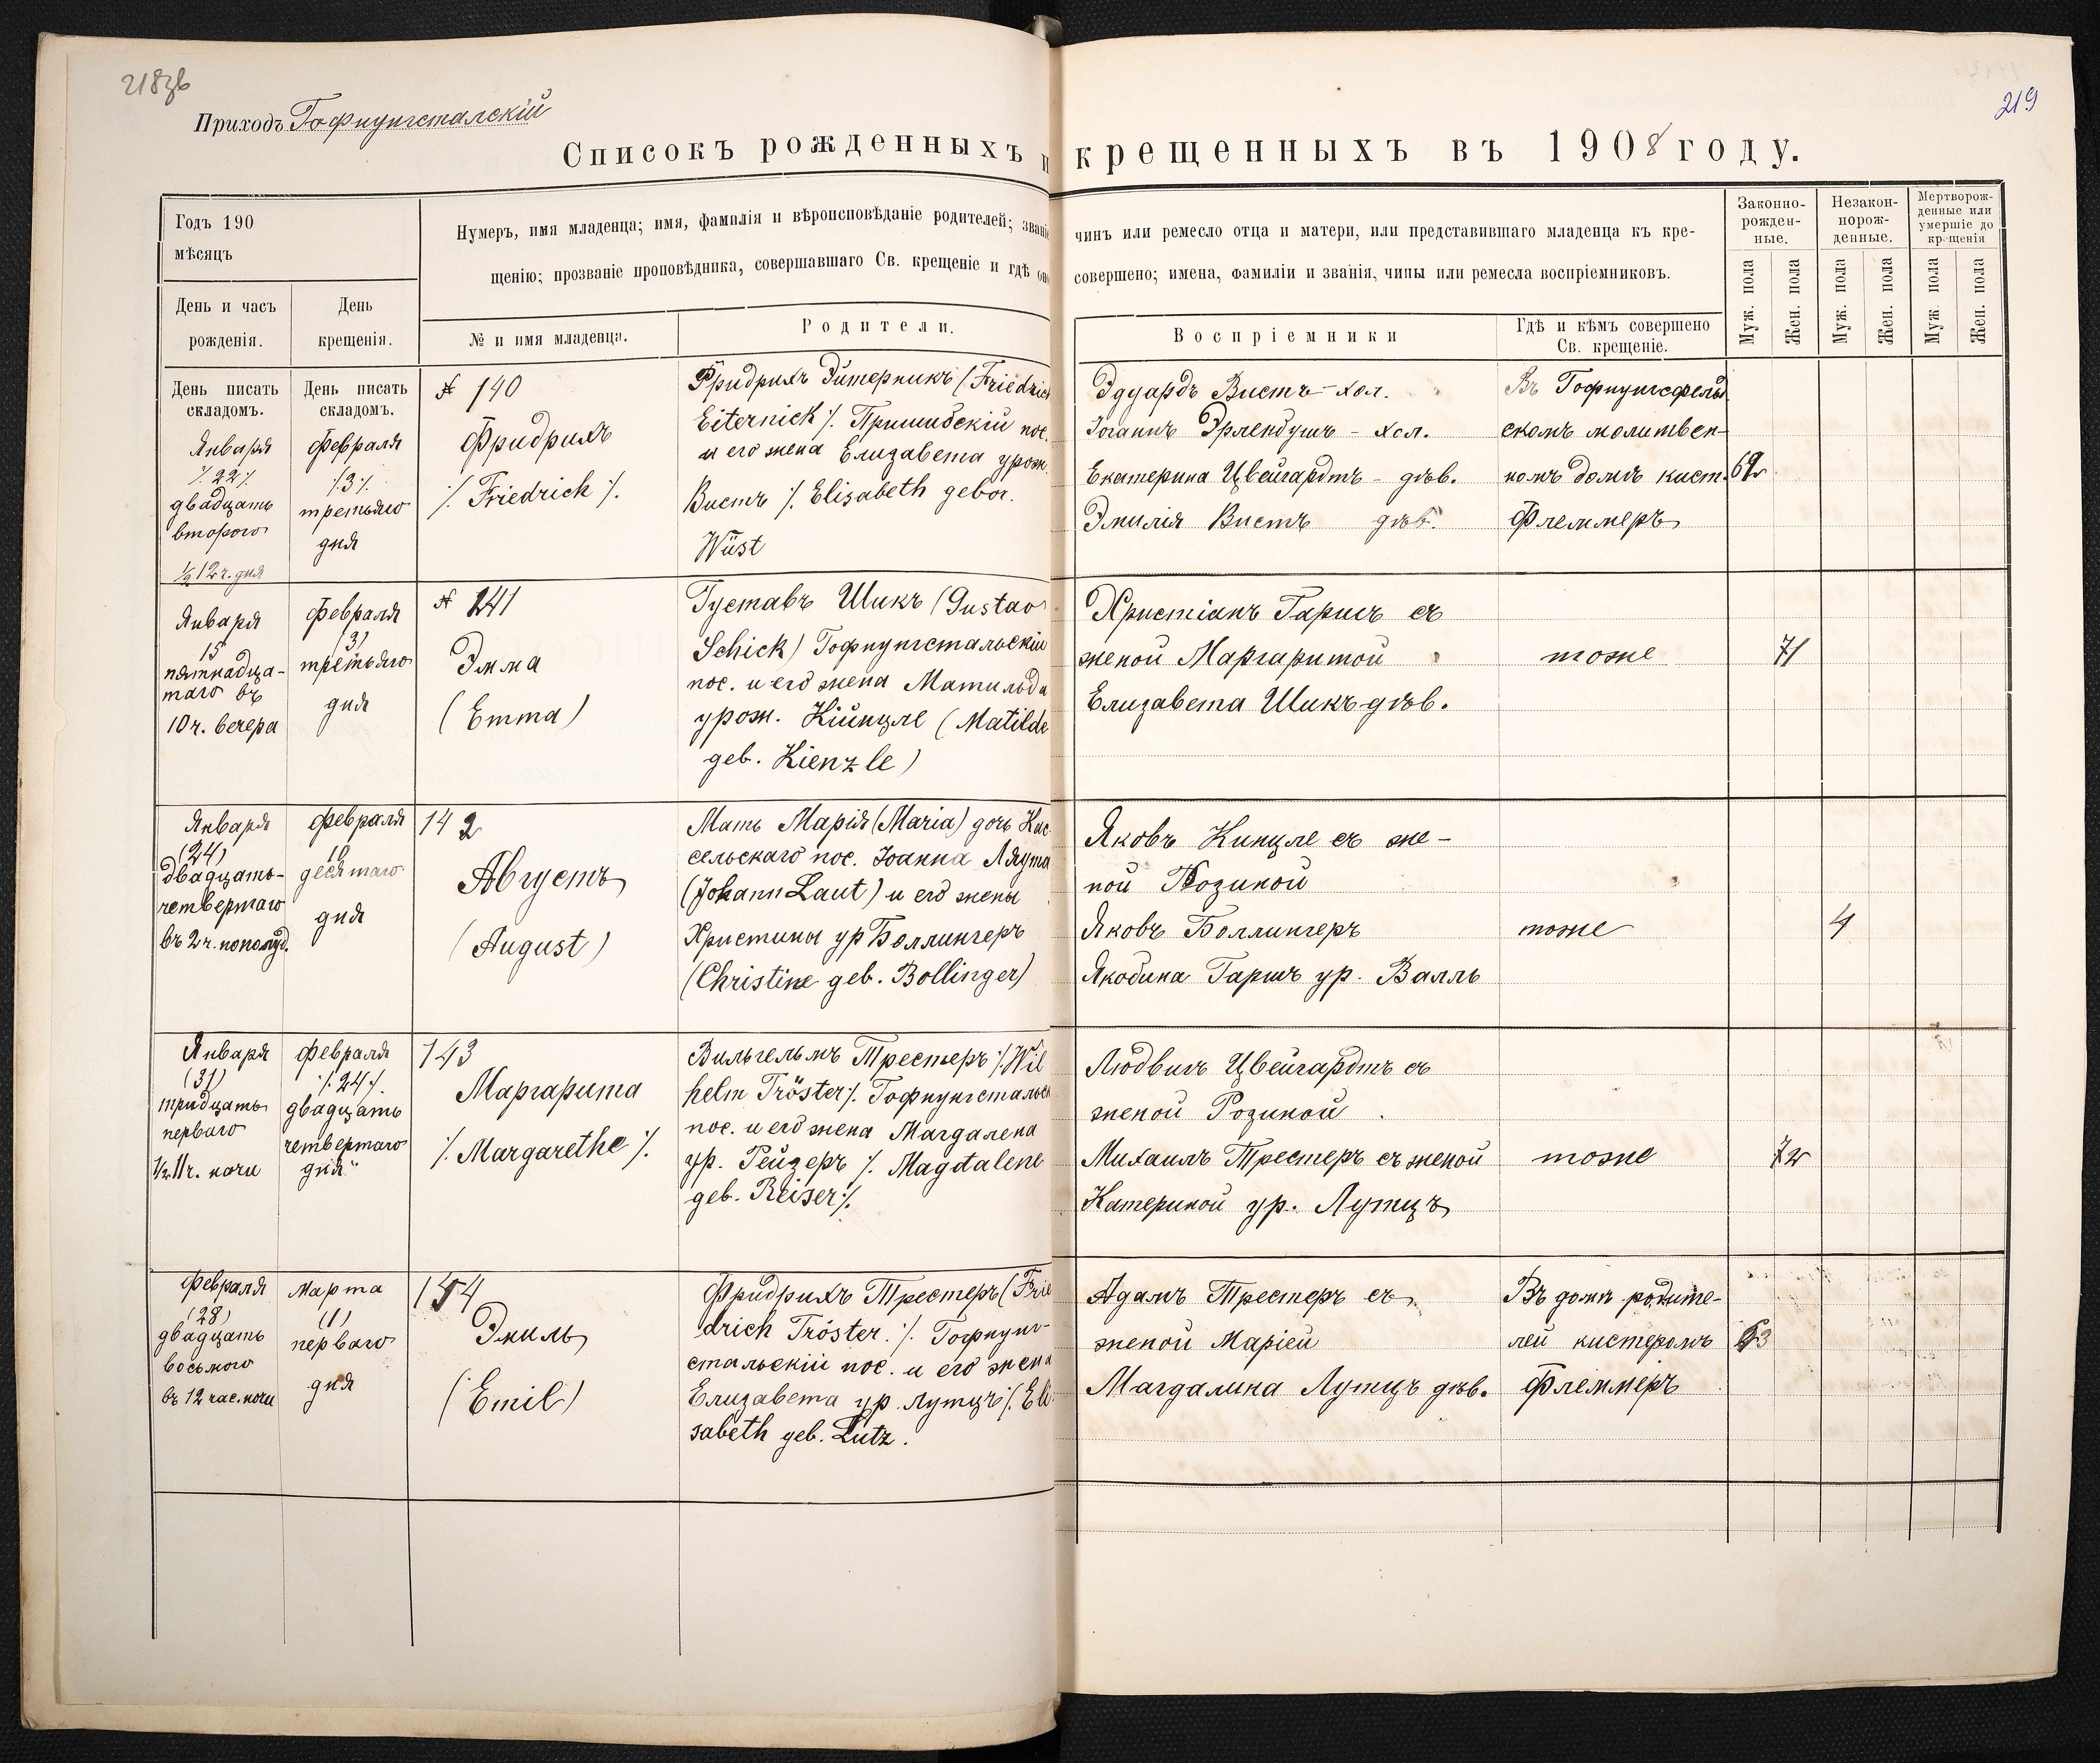 218об
219
Приходъ Гофнунгсталскій
Списокъ рожденныхъ и крещенныхъ въ 1908 году.
Годъ 190
мѣсяцъ
День и часъ
рожденія.
День
крещенія.
Нумеръ, имя младенца; имя, фамилія и вѣроисповѣданіе родителей; званіе чинъ или ремесло отца и матери, или представившаго младенца къ кре-
щенію; прозваніе проповѣдника, совершавшаго Св. крещеніе и гдѣ оно совершено; имена, фамиліи и званія, чины или ремесла воспріемниковъ.
№ и имя младенца.
Родители.
Воспріемники
Гдѣ и кѣмъ совершено
Св. крещеніе.
Законно-
рожден-
ные.
Незакон-
норож-
денные.
Мертворож-
денные или
умершіе до
крещенія
Муж. пола
Жен. пола
Муж. пола
Жен. пола
Муж. пола
Жен. пола
День писать
складомъ.
Января
/. 22 ./
двадцать
второго
1/2 12 ч. дня
День писать
складомъ.
Февраля
/. 3 ./
третьяго
дня
№ 140
Фридрихъ
/. Friedrich ./
Фридрихъ Эйтерникъ (Friedrich
Eiternick ./. Пришибскій пос.
и его жена Елизавета урож.
Вистъ /. Elisabeth gebor.
Wüst
Эдуардъ Вистъ - хол.
Іоганнъ Эрлендушъ - хол.
Екатерина Цвейгардтъ - дѣв.
Эмилія Вистъ дѣв.
Въ Гофнунгсфельд
скомъ молитвен-
номъ домѣ кист.
Флеммеръ
69
Января
15
пятнадца-
таго въ
10 ч. вечера
Февраля
(3)
третьяго
дня
№ 141
Эмма
(Emma)
Густавъ Шикъ (Gustav
Schick) Гофнунгстальскій
пос. и его жена Матильда
урож. Кіинцле (Matilde
geb. Kienzle)
Христіанъ Гаришъ съ
женой Маргаритой
Елизавета Шикъ дѣв.
тоже
71
Января
(24)
двадцать-
четвертаго
въ 2 ч. пополуд.
Февраля
10
десятаго
дня
142
Августъ
(August)
Мать Марія (Maria) дочь Кас-
сельскаго пос. Іоанна Ляута
(Johann Laut) и его жены
Христины ур Боллингеръ
(Christine geb. Bollinger)
Яковъ Кинцле съ же-
ной Розиной
Яковъ Боллингеръ
Якобина Гаршъ ур. Валль
тоже
4
Января
(31)
тридцать
перваго
1/2 11 ч. ночи
Февраля
/. 24 ./
двадцать
четвертаго
дня
143
Маргарита
/. Margarethe ./
Вильгельмъ Трестеръ /. Wil
helm Tröster ./. Гофнунгстальск
пос. и его жена Магдалена
ур. Рейзеръ /. Magdalene
geb. Reiser ./.
Людвигъ Цвейгардтъ съ
женой Розиной
Михаилъ Трестеръ съ женой
Катериной ур. Лутцъ
тоже
72
Февраля
(28)
двадцать
восьмого
въ 12 час. ночи
Марта
(1)
перваго
дня
144
Эмиль
(Emil)
Фридрихъ Трестеръ (Frie
drich Tröster ./. Гофнунг-
стальскій пос. и его жена
Елизавета ур. Лутцъ /. Eli
sabeth geb. Lutz.
Адамъ Трестеръ съ
женой Маріей
Магдалина Лутцъ дѣв.
Въ домѣ родите-
лей кистеромъ
Флеммеръ